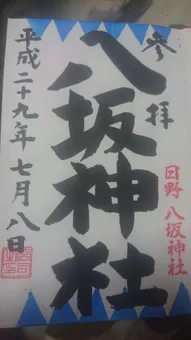 参拝
日野八坂神社
八坂神社
平成二十九年七月八日